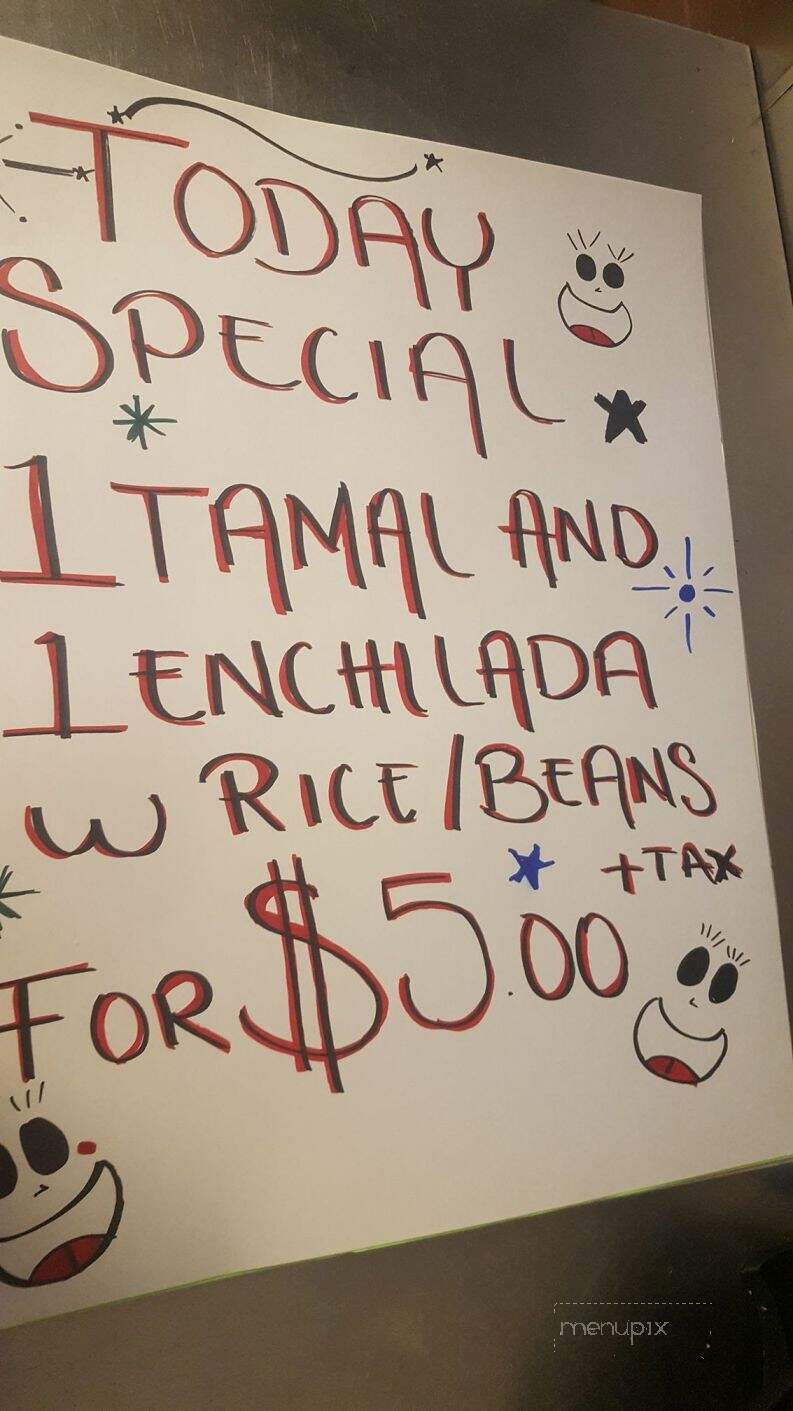 TODAY
SPECIAL
1 TAMAL AND
1 ENCHILADA
W RICE/BEANS
+TAX
FOR $5.00
menupix